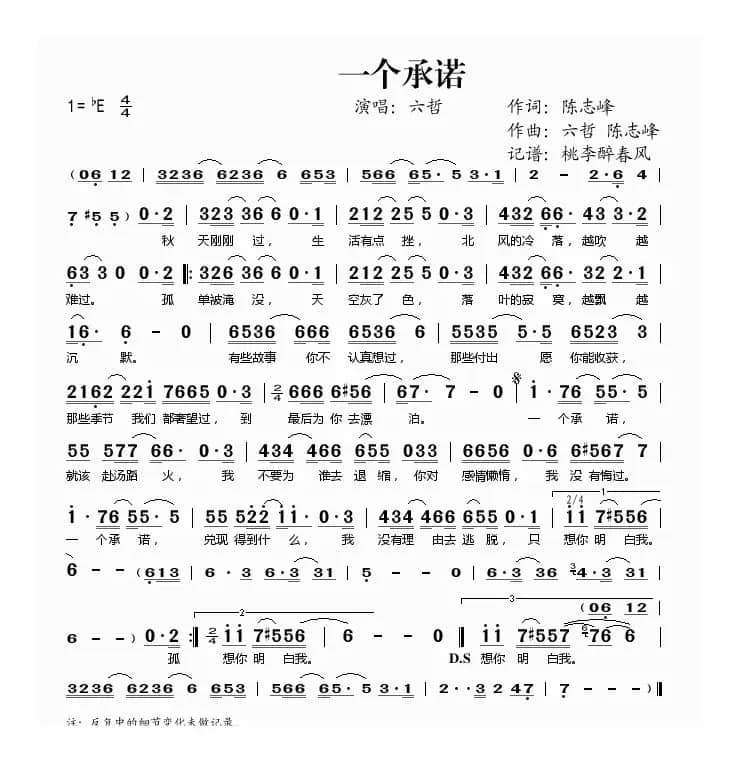 一个承诺
1= ♭E 4/4 演唱：六哲 作词：陈志峰
作曲：六哲 陈志峰
记谱：桃李醉春风
(06 12 | 3236 6236 6 653 | 566 65· 5 3·1 | 2 - 2·6 4
7 #5 5) 0·2 | 323 36 6 0·1 | 212 25 5 0·3 | 432 66· 43 3·2
秋 天刚刚 过， 生 活有点 挫， 北 风的冷 落，越吹 越
63 3 0 0·2 |: 326 36 6 0·1 | 212 25 5 0·3 | 432 66· 32 3·2
难过。 孤 单被淹 没， 天 空灰了 色， 落 叶的寂 寞，越飘 越
16· 6 - 0 | 6536 666 6536 6 | 5535 5·5 6523 3
沉 默。 有些故事 你不 认真想过， 那些付出 愿 你能收获，
2162 221 7665 0·3 | 2/4 666 6#56 | 67· 7 - 0 | 1·76 55·5
那些季节 我们 都奢望过， 到 最后为 你 去漂 泊。 一个承 诺，
55 577 66· 0·3 | 434 466 655 033 | 6656 0·6 6#567 7
就该 赴汤蹈 火， 我 不要为 谁去 退 缩，你对 感情懒惰， 我 没 有悔过。
1·76 55·5 | 55 522 11· 0·3 | 434 466 655 0·1 | 2/4 1 11 7#556
一 个承 诺， 兑现 得到什 么， 我 没有理 由去 逃 脱， 只 想你 明 白我。
6 - - (613 | 6·3 6·3 31 | 5 - - 0 | 6·3 36 4·3 31
3 (06 12
6 - -) 0·2 :| 2 2/4 11 7#556 | 6 - - 0 || 11 7#557 76 6
孤 想你 明 白我。 D.S 想你 明 白我。
3236 6236 6 653 | 566 65· 5 3·1 | 2··3 2 47 | 7 - -) ||
注：反复中的细节变化未做记录